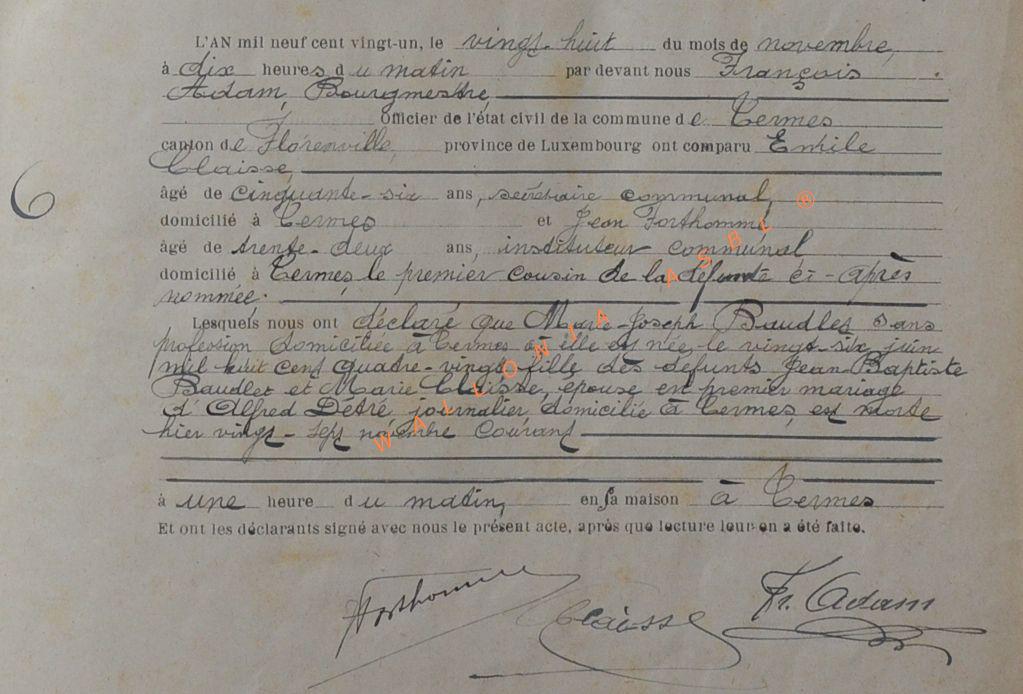 L'AN mil neuf cent vingt-un, le vingt-huit du mois de novembre,
à dix heures du matin par devant nous François
Adam, Bourgmestre,
Officier de l'état civil de la commune de Termes
canton de Florenville, province de Luxembourg ont comparu Emile
Claisse,
âgé de cinquante-six ans, secrétaire communal,
domicilié à Termes et Jean Forthomme
âgé de trente-deux ans, instituteur communal
domicilié à Termes, le premier cousin de la défunte ci-après
nommée.
6
Lesquels nous ont déclaré que Marie-Joseph Baudlet sans
profession domiciliée à Termes où elle est née le vingt-six juin
mil huit cent quatre-vingt fille des défunts Jean-Baptiste
Baudlet et Marie Claisse, épouse en premier mariage
d'Alfred Detré, journalier, domicilié à Termes, est morte
hier vingt-sept novembre courant
à une heure du matin, en sa maison à Termes
Et ont les déclarants signé avec nous le présent acte, après que lecture leur en a été faite.
Forthomme Claisse Fr. Adam
WALLONIA ASBL ®